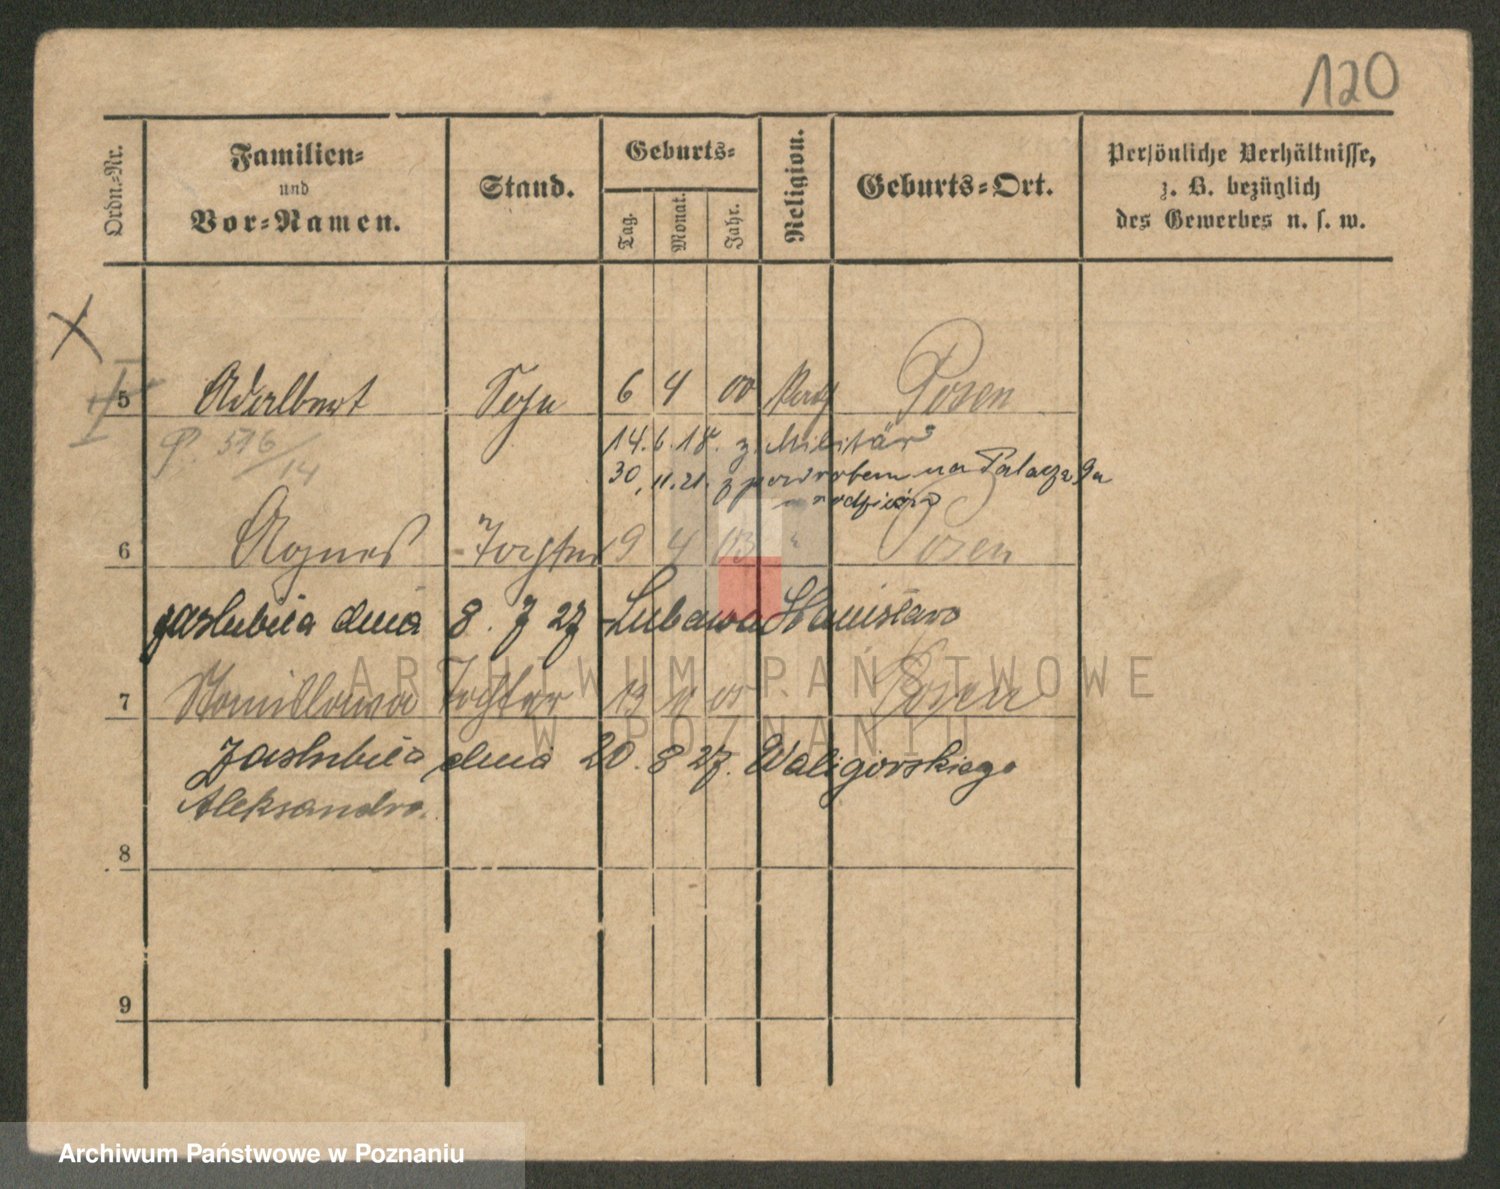 120
Ordn.-Nr.
Familien-
und
Vor-Namen.
Stand.
Geburts-
Tag.
Monat.
Jahr.
Religion.
Geburts-Ort.
Persönliche Verhältnisse,
z. B. bezüglich
des Gewerbes u. s. w.
5 Adalbert Sohn 6 4 00 Posen
P. 516/14
14. 6. 18. z. Militär
30. 11. 21. z powrotem na Palacza 9a
rodziców
6 Agnes Tochter 19 4 03 " Posen
zaslubiła dnia 8. 7 27 Lubawa Stanisław
7 Stanislawa Tochter 19 05 Posen
Zaslubiła dnia 20. 8 27. Waligorskiego
Aleksandra.
8
9
ARCHIWUM PAŃSTWOWE
W POZNANIU
Archiwum Państwowe w Poznaniu